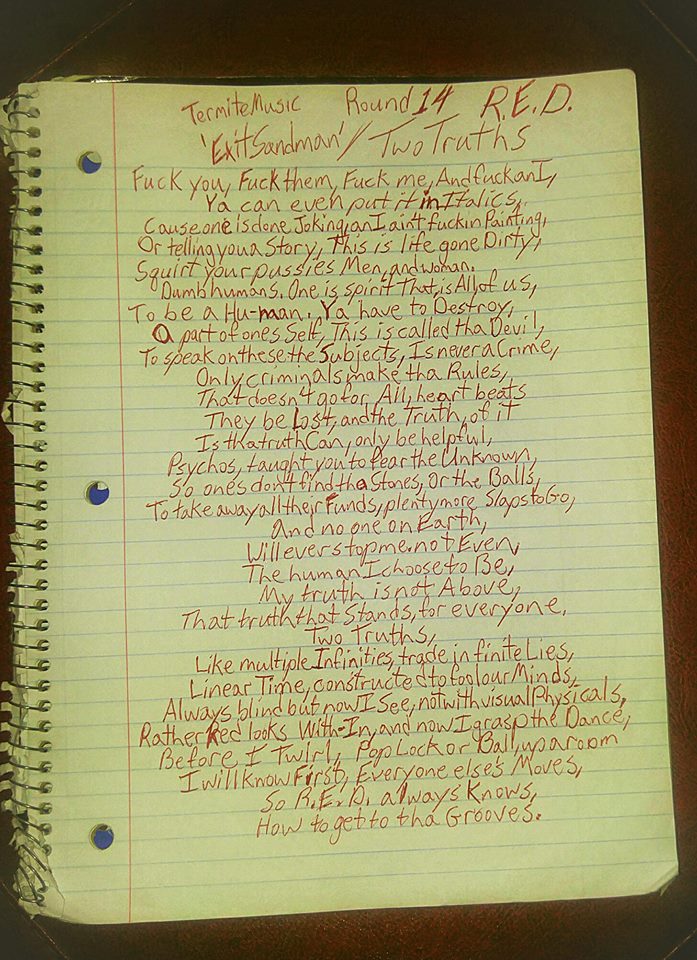 TermiteMusic Round 14 R.E.D.
'ExitSandman' / Two Truths
Fuck you, Fuck them, Fuck me, And fuck an I,
Ya can even put it in Italics,
Cause one is done Joking, an I aint fuckin Painting,
Or telling you a Story, This is life gone Dirty,
Squirt your pussies Men, and woman.
Dumb humans. One is spirit That is All of us,
To be a Hu-man. Ya have to Destroy,
a part of ones Self, This is called tha Devil,
To speak on these the Subjects, Is never a Crime,
Only criminals make tha Rules,
That doesn't go for All, heart beats
They be Lost, and the Truth, of it
Is tha truth Can, only be helpful,
Psychos, taught you to fear the Unknown,
So ones don't find tha Stones, Or the Balls,
To take away all their Funds, plenty more Slaps to Go,
And no one on Earth,
Will ever stop me. not Even,
The human I choose to Be,
My truth is not Above,
That truth that Stands, for everyone.
Two Truths,
Like multiple Infinities, trade in finite Lies,
Linear Time, constructed to fool our Minds,
Always blind but now I See, not with visual Physicals,
Rather Red looks With-In, and now I grasp the Dance,
Before I Twirl, Pop Lock or Ball, up a room
I will know First, Everyone else's Moves,
So R.E.D. always Knows,
How to get to tha Grooves.